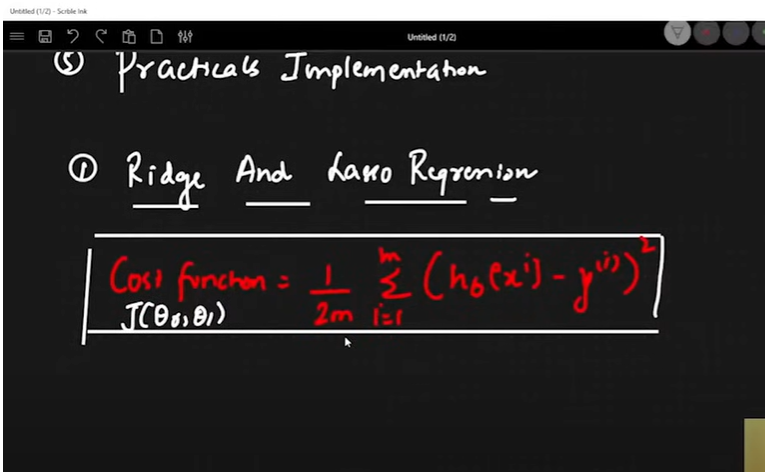 Untitled (1/2) - Scrble Ink
Untitled (1/2)
⑤ Practicals Implementation
① Ridge And Lasso Regression
Cost function = 1/2m Σ i=1 m (hθ(x^i) - y^(i))^2
J(θ0, θ1)